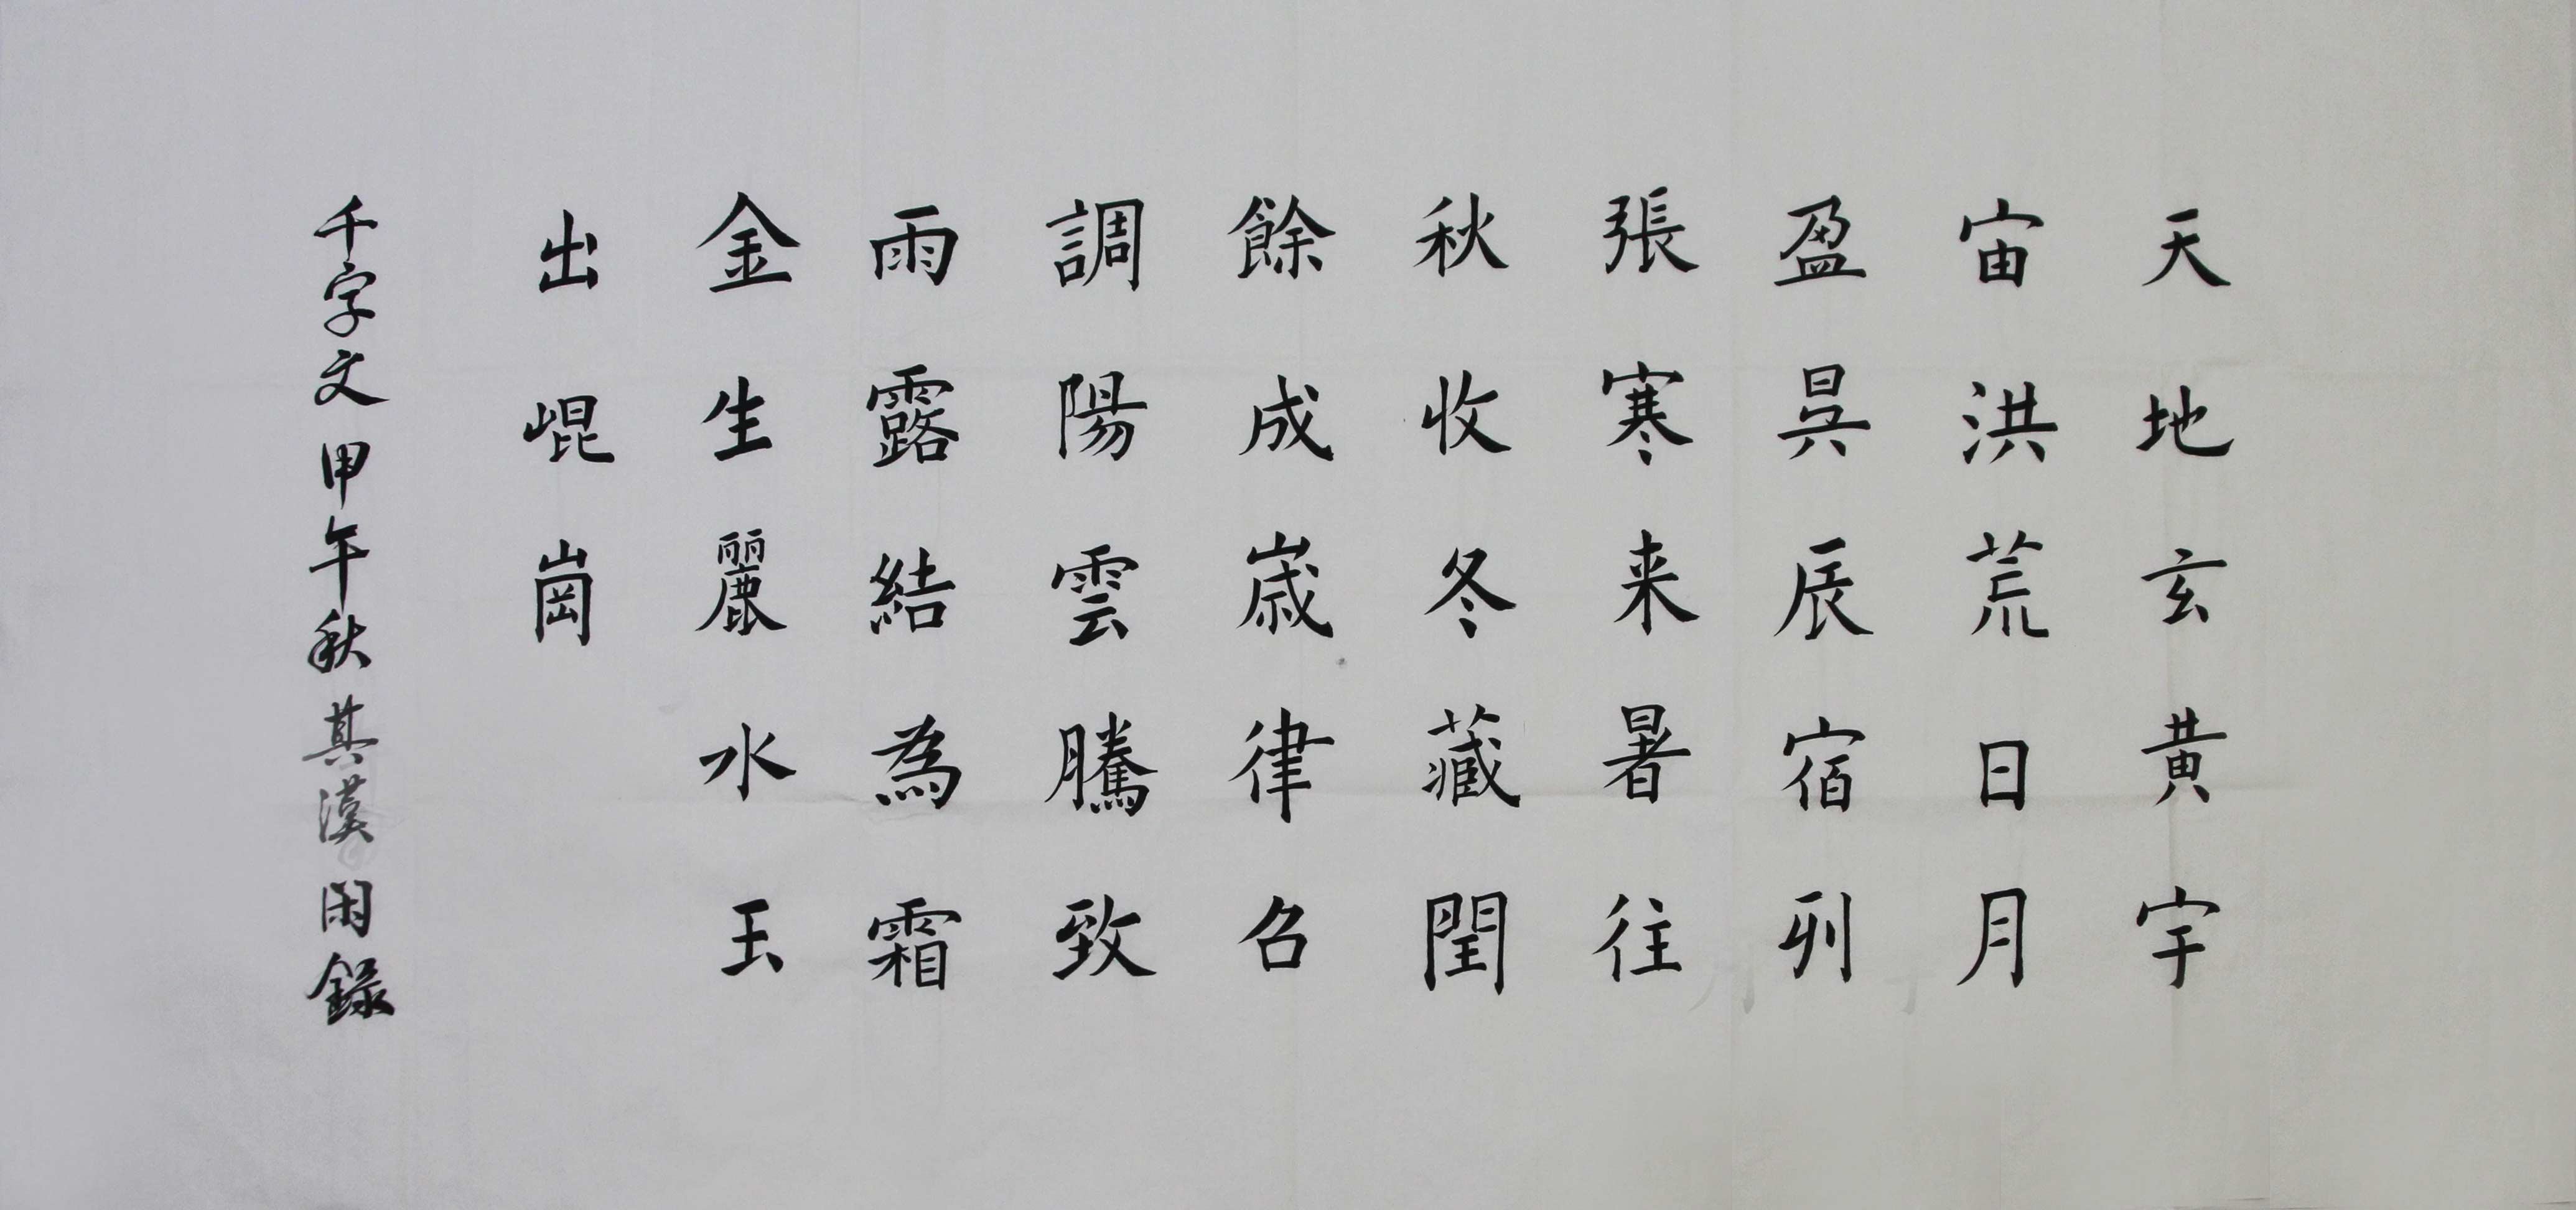 天地玄黃宇
宙洪荒日月
盈昃辰宿列
張寒来暑往
秋收冬藏閏
餘成歲律召
調陽雲騰致
雨露結為霜
金生麗水玉
出崐崗
千字文甲午秋其漢閑錄